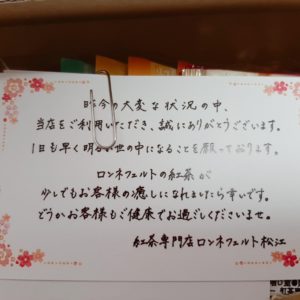 昨今の大変な状況の中、
当店をご利用いただき、誠にありがとうございます。
1日も早く明るい世の中になることを願っております。
ロンネフェルトの紅茶が
少しでもお客様の癒しになれましたら幸いです。
どうかお客様もご健康でお過ごしくださいませ。
紅茶専門店ロンネフェルト松江